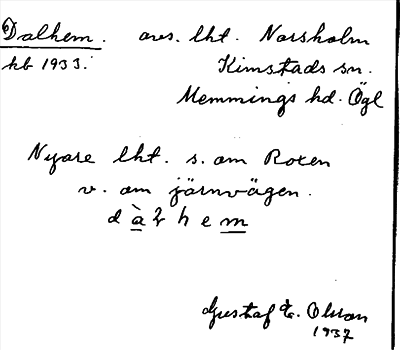 Dalhem. avs. lht. Norsholm
kb 1933. Kimstads sn.
Memmings hd. Ögl
Nyare lht. s. om Roxen
v. om järnvägen.
d à l h e m
Gustaf E. Olsson
1937